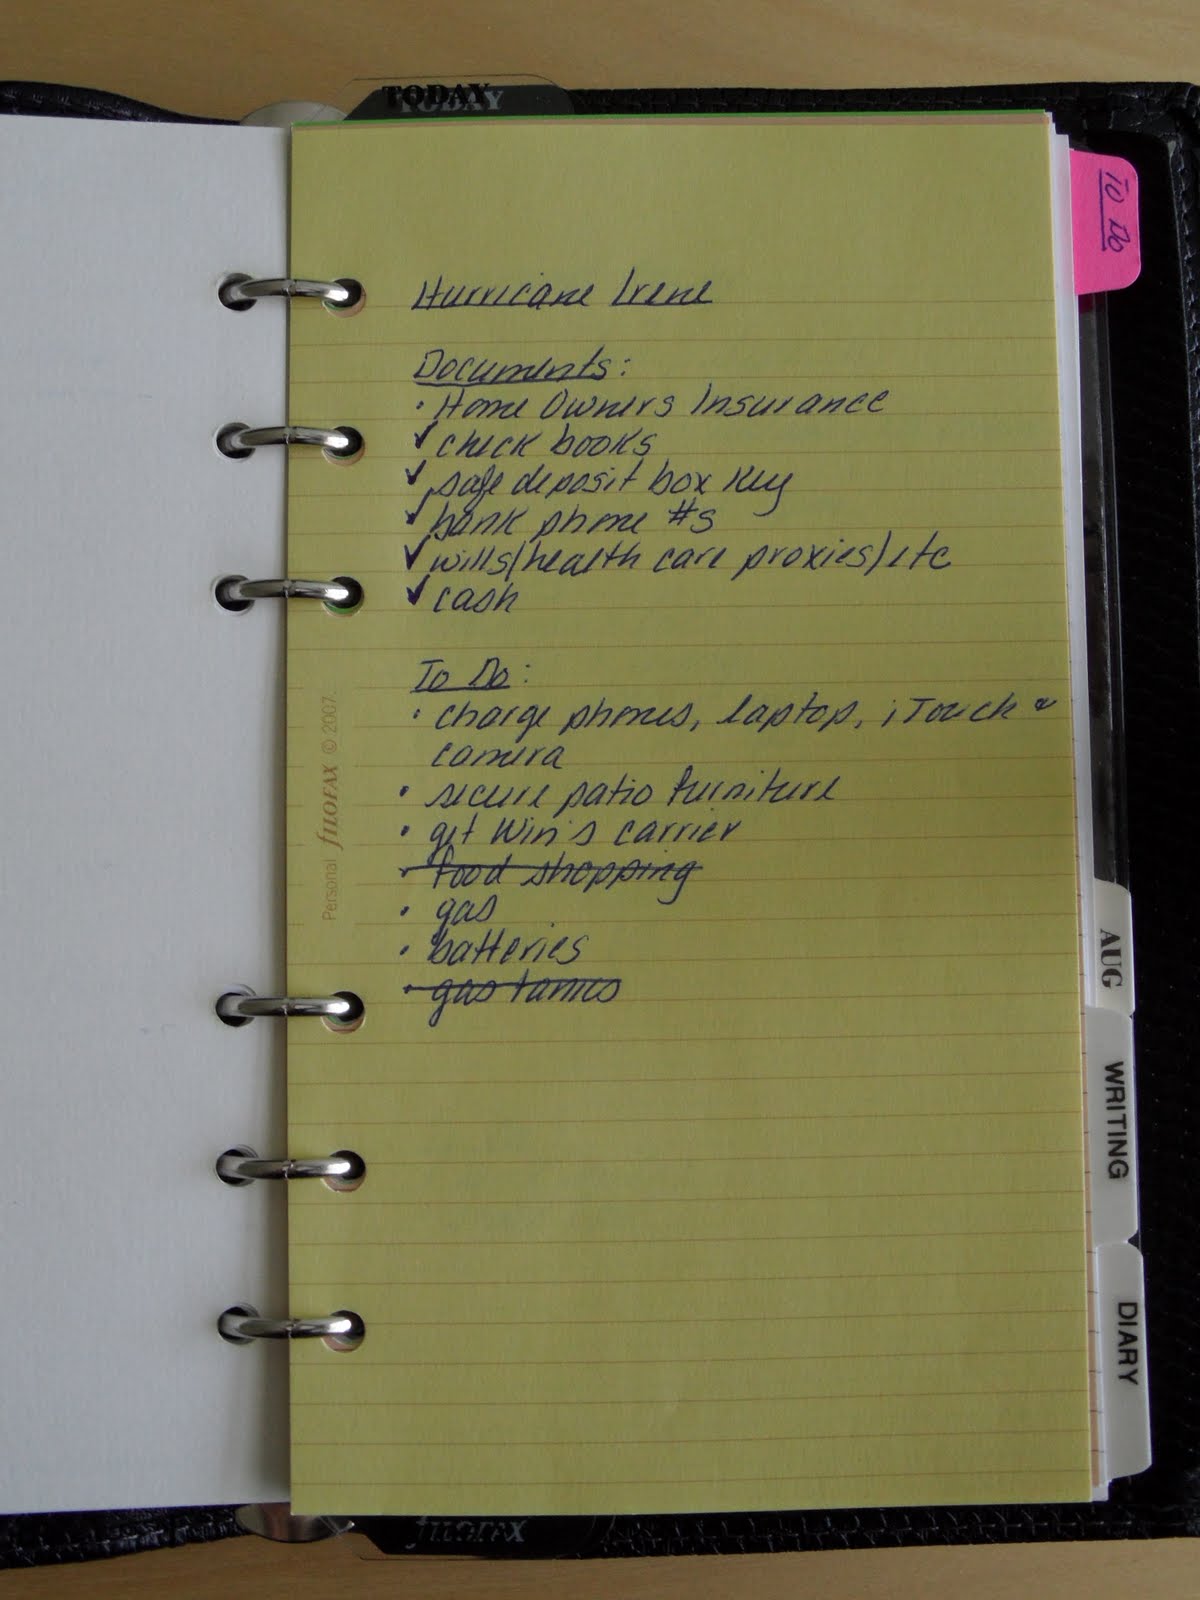 TODAY
To Do
Hurricane Irene
Documents:
· Home Owners Insurance
✓ check books
✓ safe deposit box key
✓ bank phone #s
✓ wills/health care proxies/etc
✓ cash
To Do:
· charge phones, laptop, iTouch &
camera
· secure patio furniture
· get Win's carrier
· food shopping
· gas
· batteries
· gas tanks
Personal FILOFAX © 2007.
AUG
WRITING
DIARY
FILOFAX